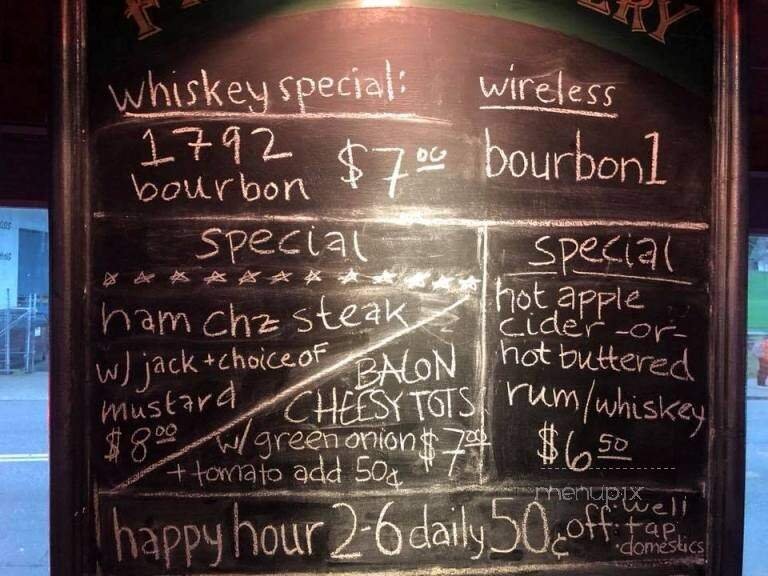 whiskey special:
1792
bourbon $7.00
wireless
bourbon1
special
ham chz steak
w/ jack + choice of
mustard
$8.00
BACON
CHEESY TOTS
w/ green onion $7.00
+ tomato add 50¢
special
hot apple
cider -or-
hot buttered
rum/whiskey
$6.50
menupix
happy hour 2-6 daily 50¢ off: well
tap
domestics